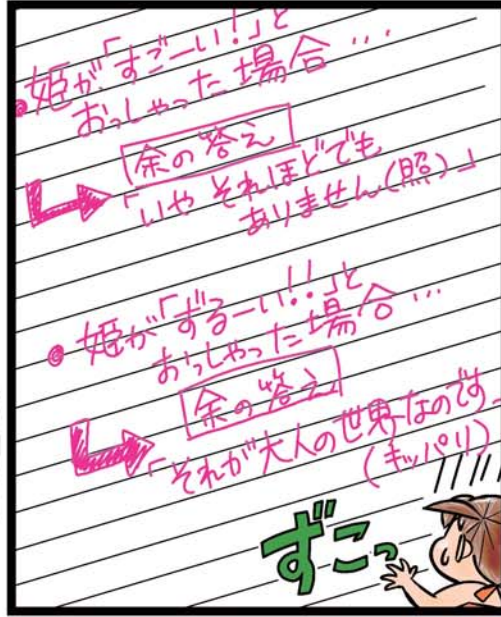 ●姫が「すごーい!」と
おっしゃった場合…
余の答え
「いや それほどでも
ありません(照)」
●姫が「ずるーい!!」と
おっしゃった場合…
余の答え
「それが大人の世界なのです」
(キッパリ)
ずこっ